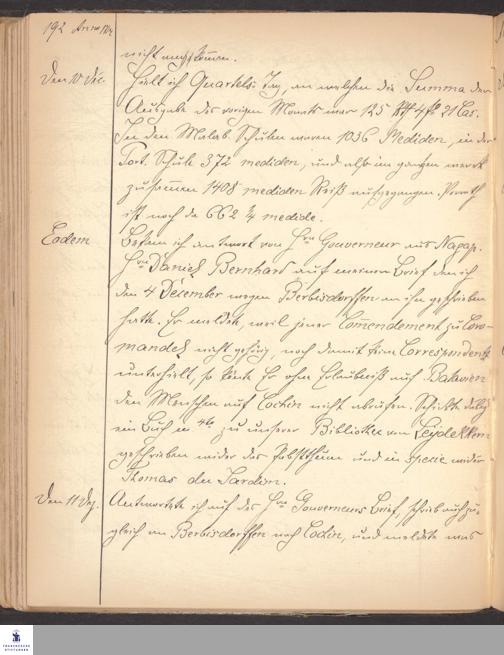 192 Anno 17
nicht
Den 10 Dec.
Hielt ich Quartals-Tag, an welchem die Summa der
Ausgabe des vorigen Monats war 125 4 21 Cas.
In den Malab. Schulen waren 1036 Mediden, in der
Port. Schule 372 mediden, und also im ganzen
zusammen 1408 mediden Reiß aufgegangen.
ist noch da 662 ¼ medide.
Eodem
Bekam ich antwort von Hrn Gouverneur aus Nagap.
Hrn Daniel Bernhard auf meinen Brief den ich
den 4 December wegen Berbisdorffen an ihn geschrieben
hatte. Er meldete, weil jener Comendement zu Coro-
mandel nicht gehörig, noch damit kein Correspondentz
unterhielt, so könte Er ohne Erlaubniß aus Batavien
den Menschen auf Cochin nicht abrufen. Schickte dabey
ein Buch in 4to zu unserer Bibliothec von Leydekkern
geschrieben wider das Pabstthum und in specie wider
Thomas du Jardin.
Den 11 Dez.
Antwortete ich auf des Hrn Gouverneurs Brief, schrieb auch zu-
gleich an Berbisdorffen nach Cochin, und meldete was
FRANCKESCHE
STIFTUNGEN